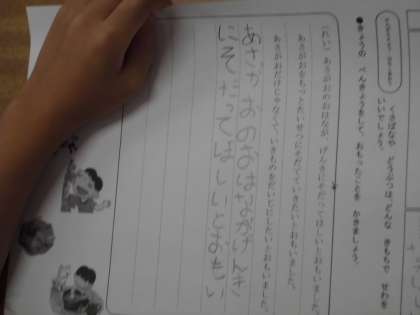 くさばなや どうぶつは、どんな きもちで せわを
いいでしょう。
●きょうの べんきょうをして、おもったことを かきましょう。
(れい) あさがおのおはなが、げんきにそだってほしいとおもいました。
あさがおをもっとたいせつにそだてていきたいとおもいました。
あさがおだけじゃなくて、いきものをだいじにしたいとおもいました。
あさがおのおはながげんき
にそだってほしいとおもい